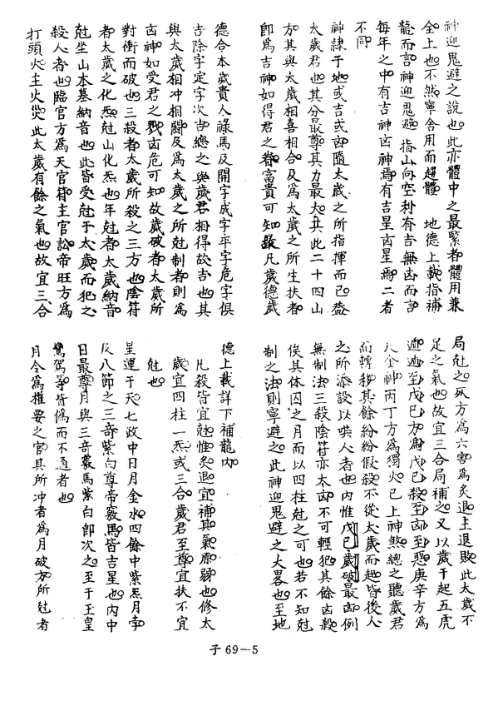 神迎鬼避之說也此亦體中之最緊者體用兼
全上也不然寧舍用而趨體　地德上載指補
龍而言神迎鬼避指山向空利有吉無凶而言
每年之中有吉神凶神焉有吉星凶星焉二者
不同
神隸于地或吉或凶隨太歲之所指揮而已蓋
太歲君也其分最尊其力最大其此二十四山
方其與太歲相喜相合及為太歲之所生扶者
即為吉神如得君之眷富貴可知最凡歲德歲
德合本歲貴人祿馬及開字成字平字危字俱
吉除字定字次吉總之與歲君相得故吉也其
與太歲相冲相關及為太歲之所尅制者則為
凶神如受君之戮凶危可知故歲破者太歲所
對衝而破也三殺者太歲所殺之三方也陰符
者太歲之化炁尅山化炁也年尅者太歲納音
尅坐山本墓納音也此皆受尅于太歲而犯之
殺人者也臨官方為天官符主官訟帝旺方為
打頭火主火災此太歲有餘之氣也故宜三合
局尅之死方為六害為炙退主退敗此太歲不
足之氣也故宜三合局補之又以歲干起五虎
遁遁至戊己方為戊己殺至凶至惡庚辛方為
天金神丙丁方為獨火已上神煞總之聽歲君
而轉移其餘紛紛假殺不從太歲而起皆後人
之所添設以唬人者也內惟戊己歲破最凶例
無制法三殺陰符亦太凶不可輕犯其餘凶殺
俟其休囚之月而以四柱尅之可也若不知尅
制之法則寧避之此神迎鬼避之大畧也至地
德上載詳下補龍內
凡殺皆宜尅惟炙退宜補其氣靡弱也修太
歲宜四柱一炁或三合歲君至尊宜扶不宜
尅也
星運于天七政中日月金水四餘中紫炁月孛
及八節之三奇紫白尊帝竅馬皆吉星也內中
日最尊月與三奇竅馬紫白即次之至于玉皇
鸞駕等皆偽而不道者也
月令為權要之官其所冲者為月破方所尅者
子69－5